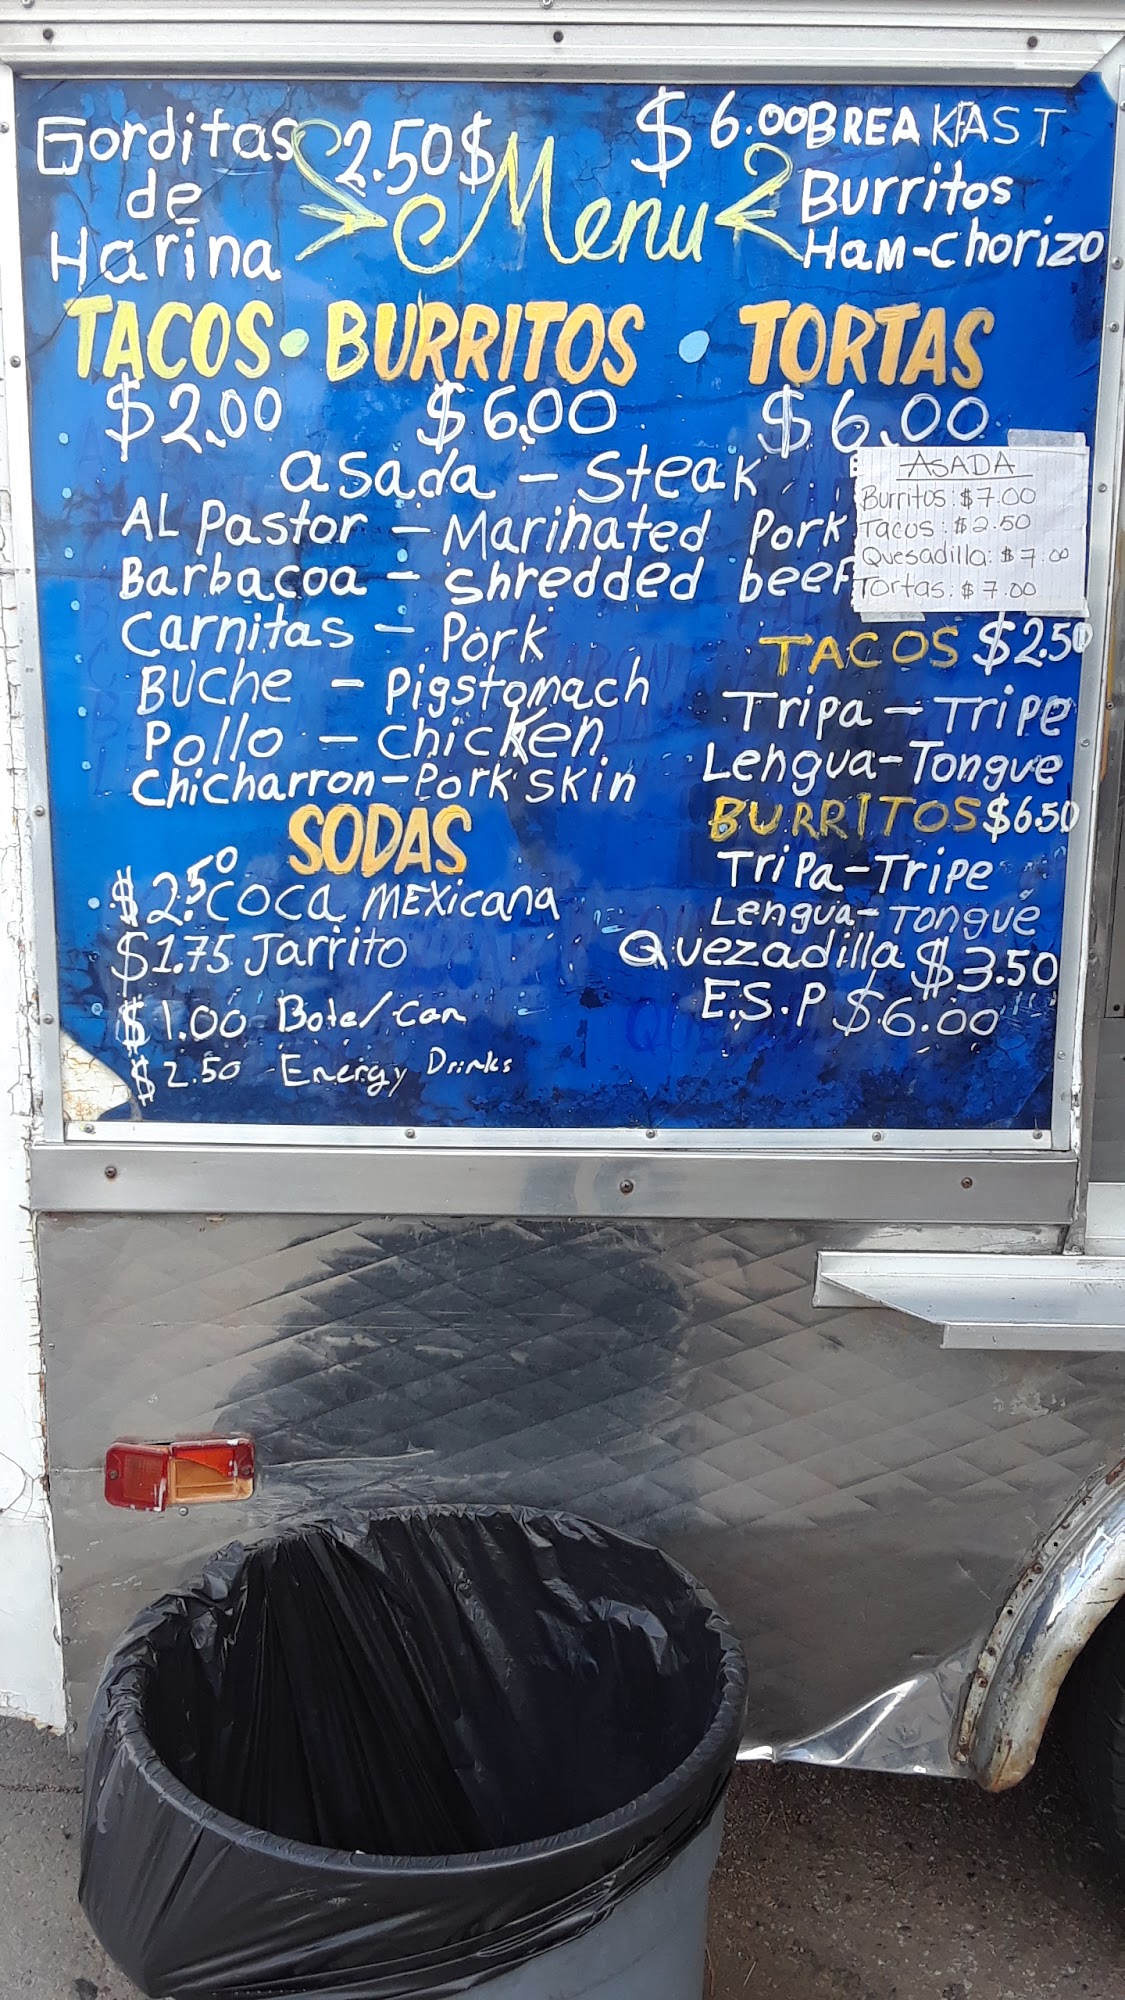 Gorditas 2.50$
de
Harina
Menu
$6.00 BREAKFAST
Burritos
HAM-Chorizo
TACOS • BURRITOS • TORTAS
$2.00 $6.00 $6.00
asada - Steak
AL Pastor - Marinated Pork
Barbacoa - shredded beef
Carnitas - Pork
Buche - Pigstomach
Pollo - chicken
Chicharron-Pork skin
ASADA
Burritos: $7.00
Tacos: $2.50
Quesadilla: $7.00
Tortas: $7.00
TACOS $2.50
Tripa - Tripe
Lengua-Tongue
BURRITOS $6.50
Tripa-Tripe
Lengua-Tongue
Quezadilla $3.50
E.S.P $6.00
SODAS
$2.50 COCA MEXicana
$1.75 Jarrito
$1.00 Bote/Can
$2.50 - Energy Drinks